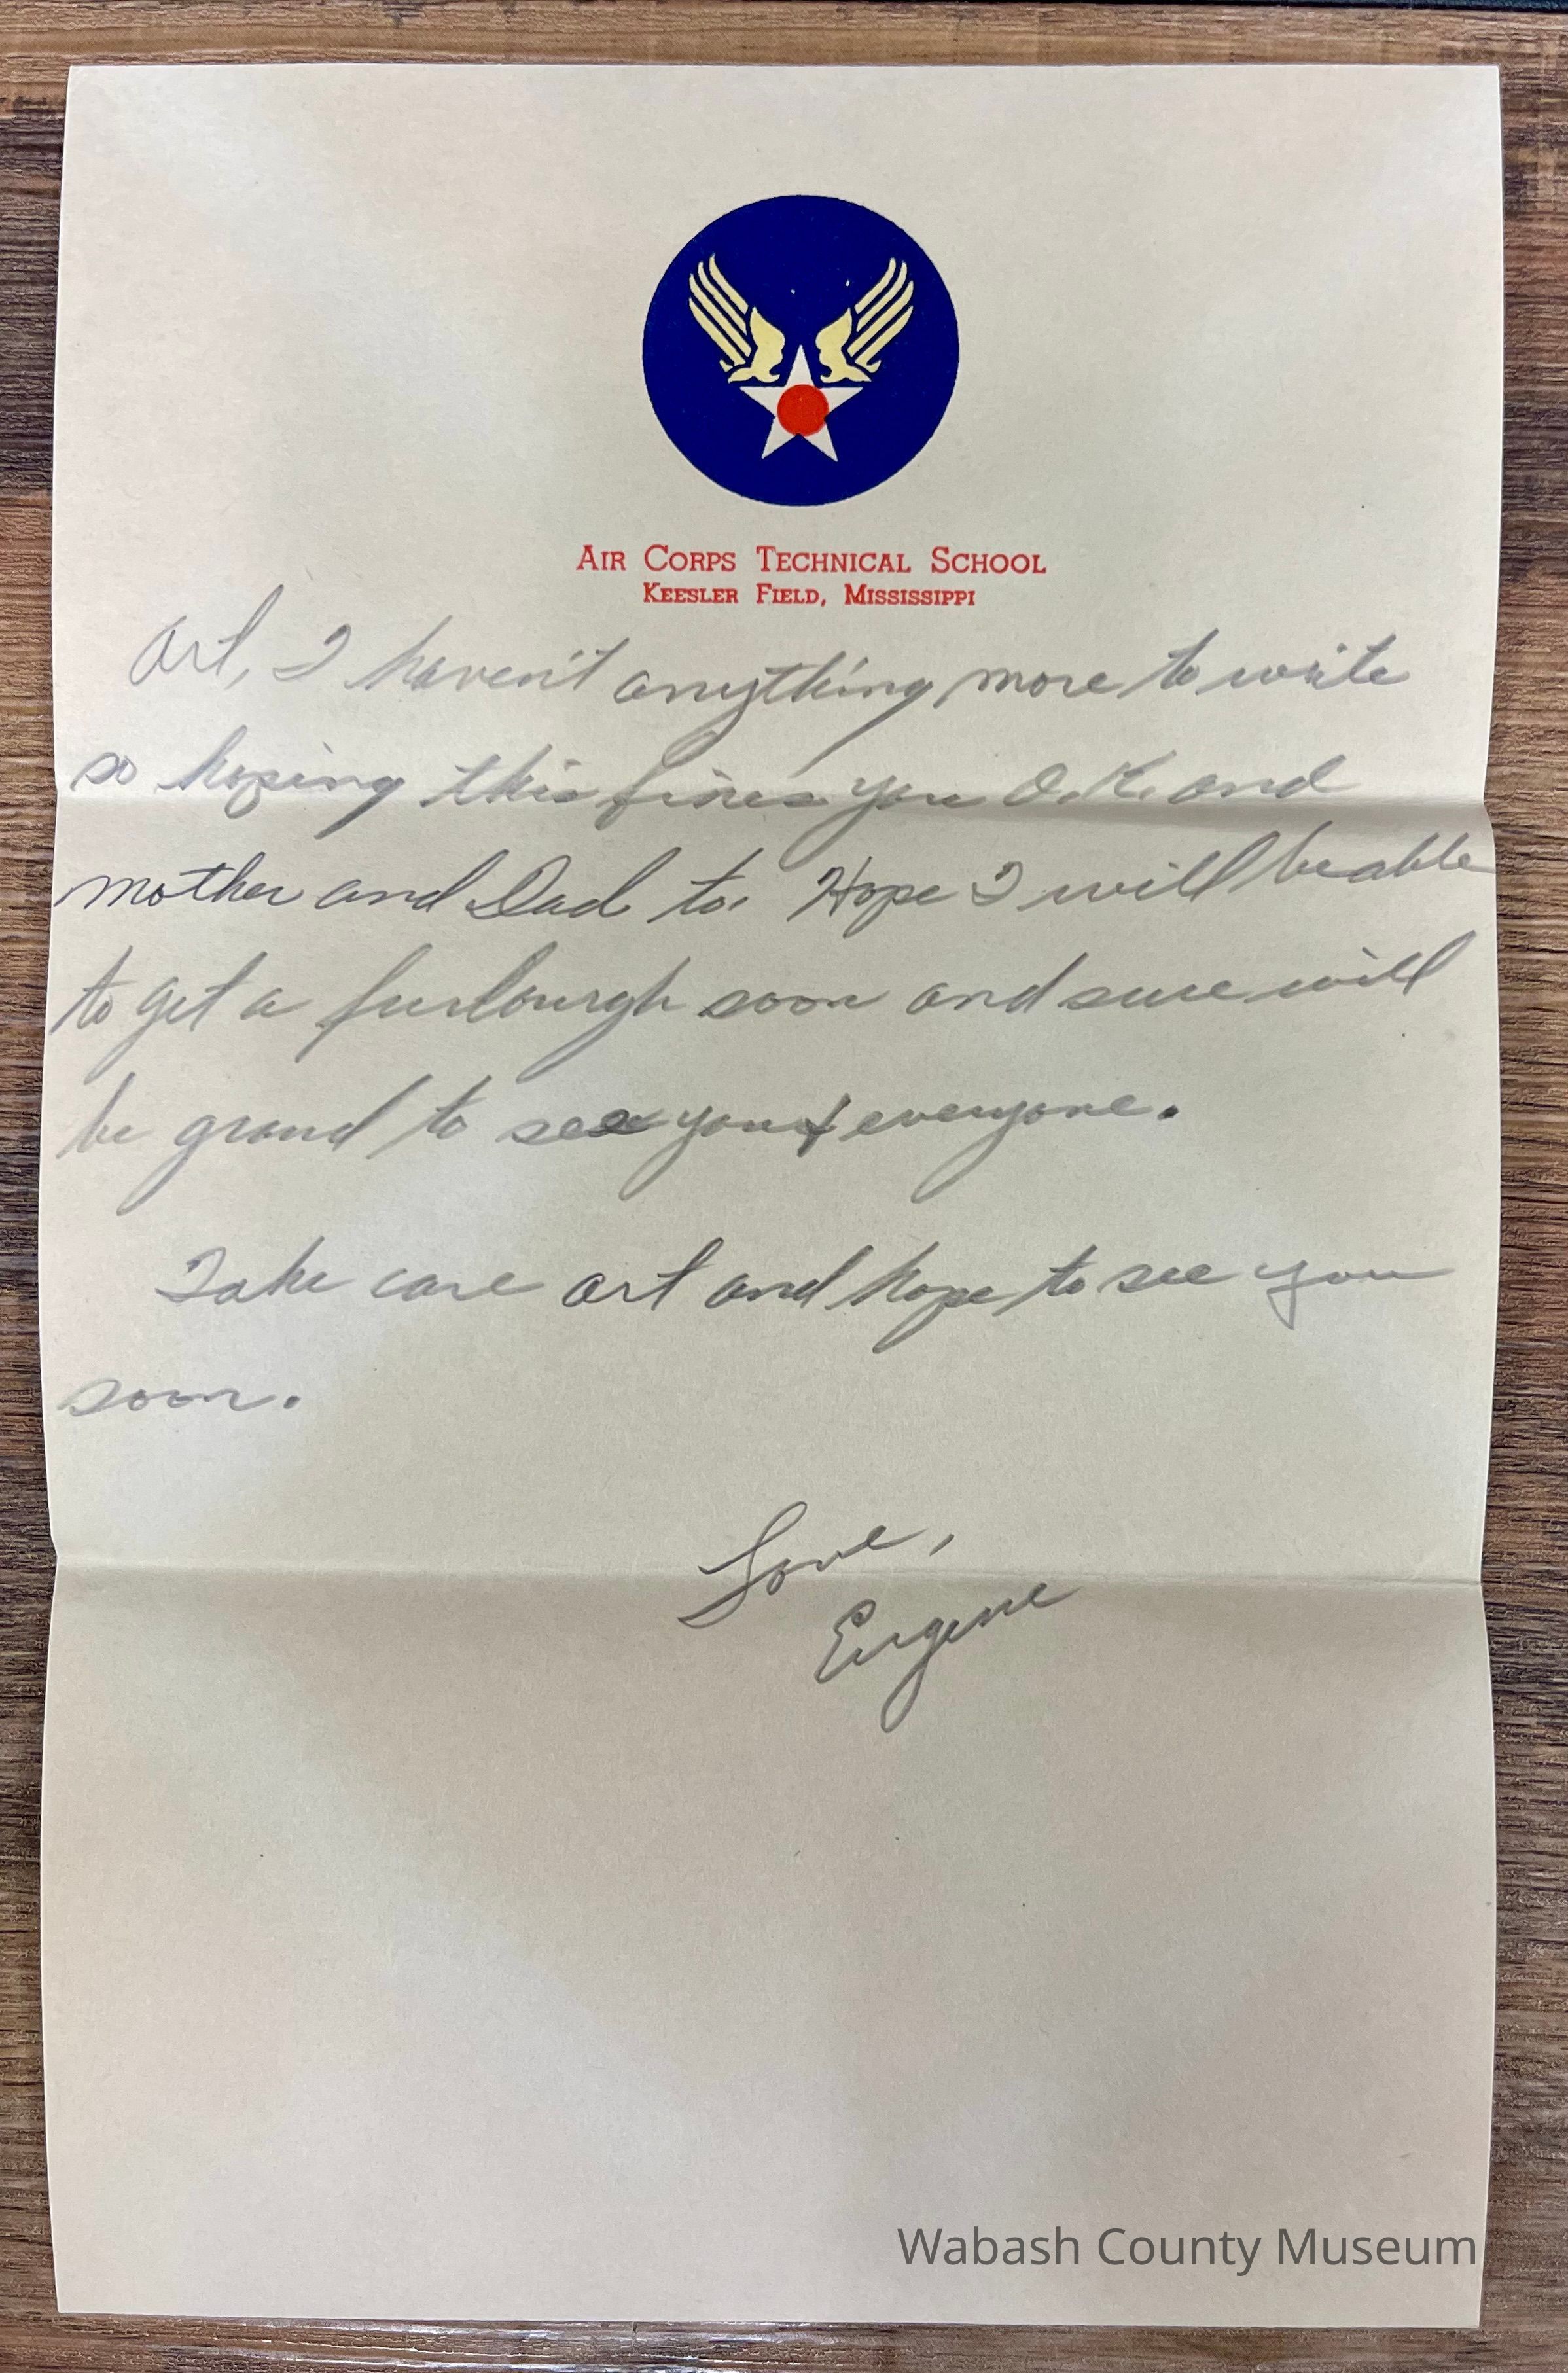 AIR CORPS TECHNICAL SCHOOL
KEESLER FIELD, MISSISSIPPI
Art, I haven't anything more to write
so hoping this fines you O.K. and
mother and Dad to. Hope I will be able
to get a furlourgh soon and sure will
be grand to see you & everyone.
Take care Art and hope to see you
soon.
Love,
Eugene
Wabash County Museum